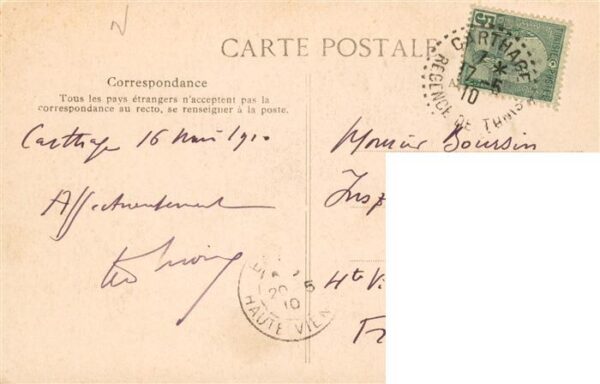 CARTE POSTALE
5c
CARTHAGE
7 *
17-5
10
REGENCE DE TUNIS
Correspondance
Tous les pays étrangers n'acceptent pas la
correspondance au recto, se renseigner à la poste.
Carthage 16 Mai 1910
Affectueusement
Monsieur Boursin
Insp
4t Vi
Fr
20 5
10
HAUTE VIEN